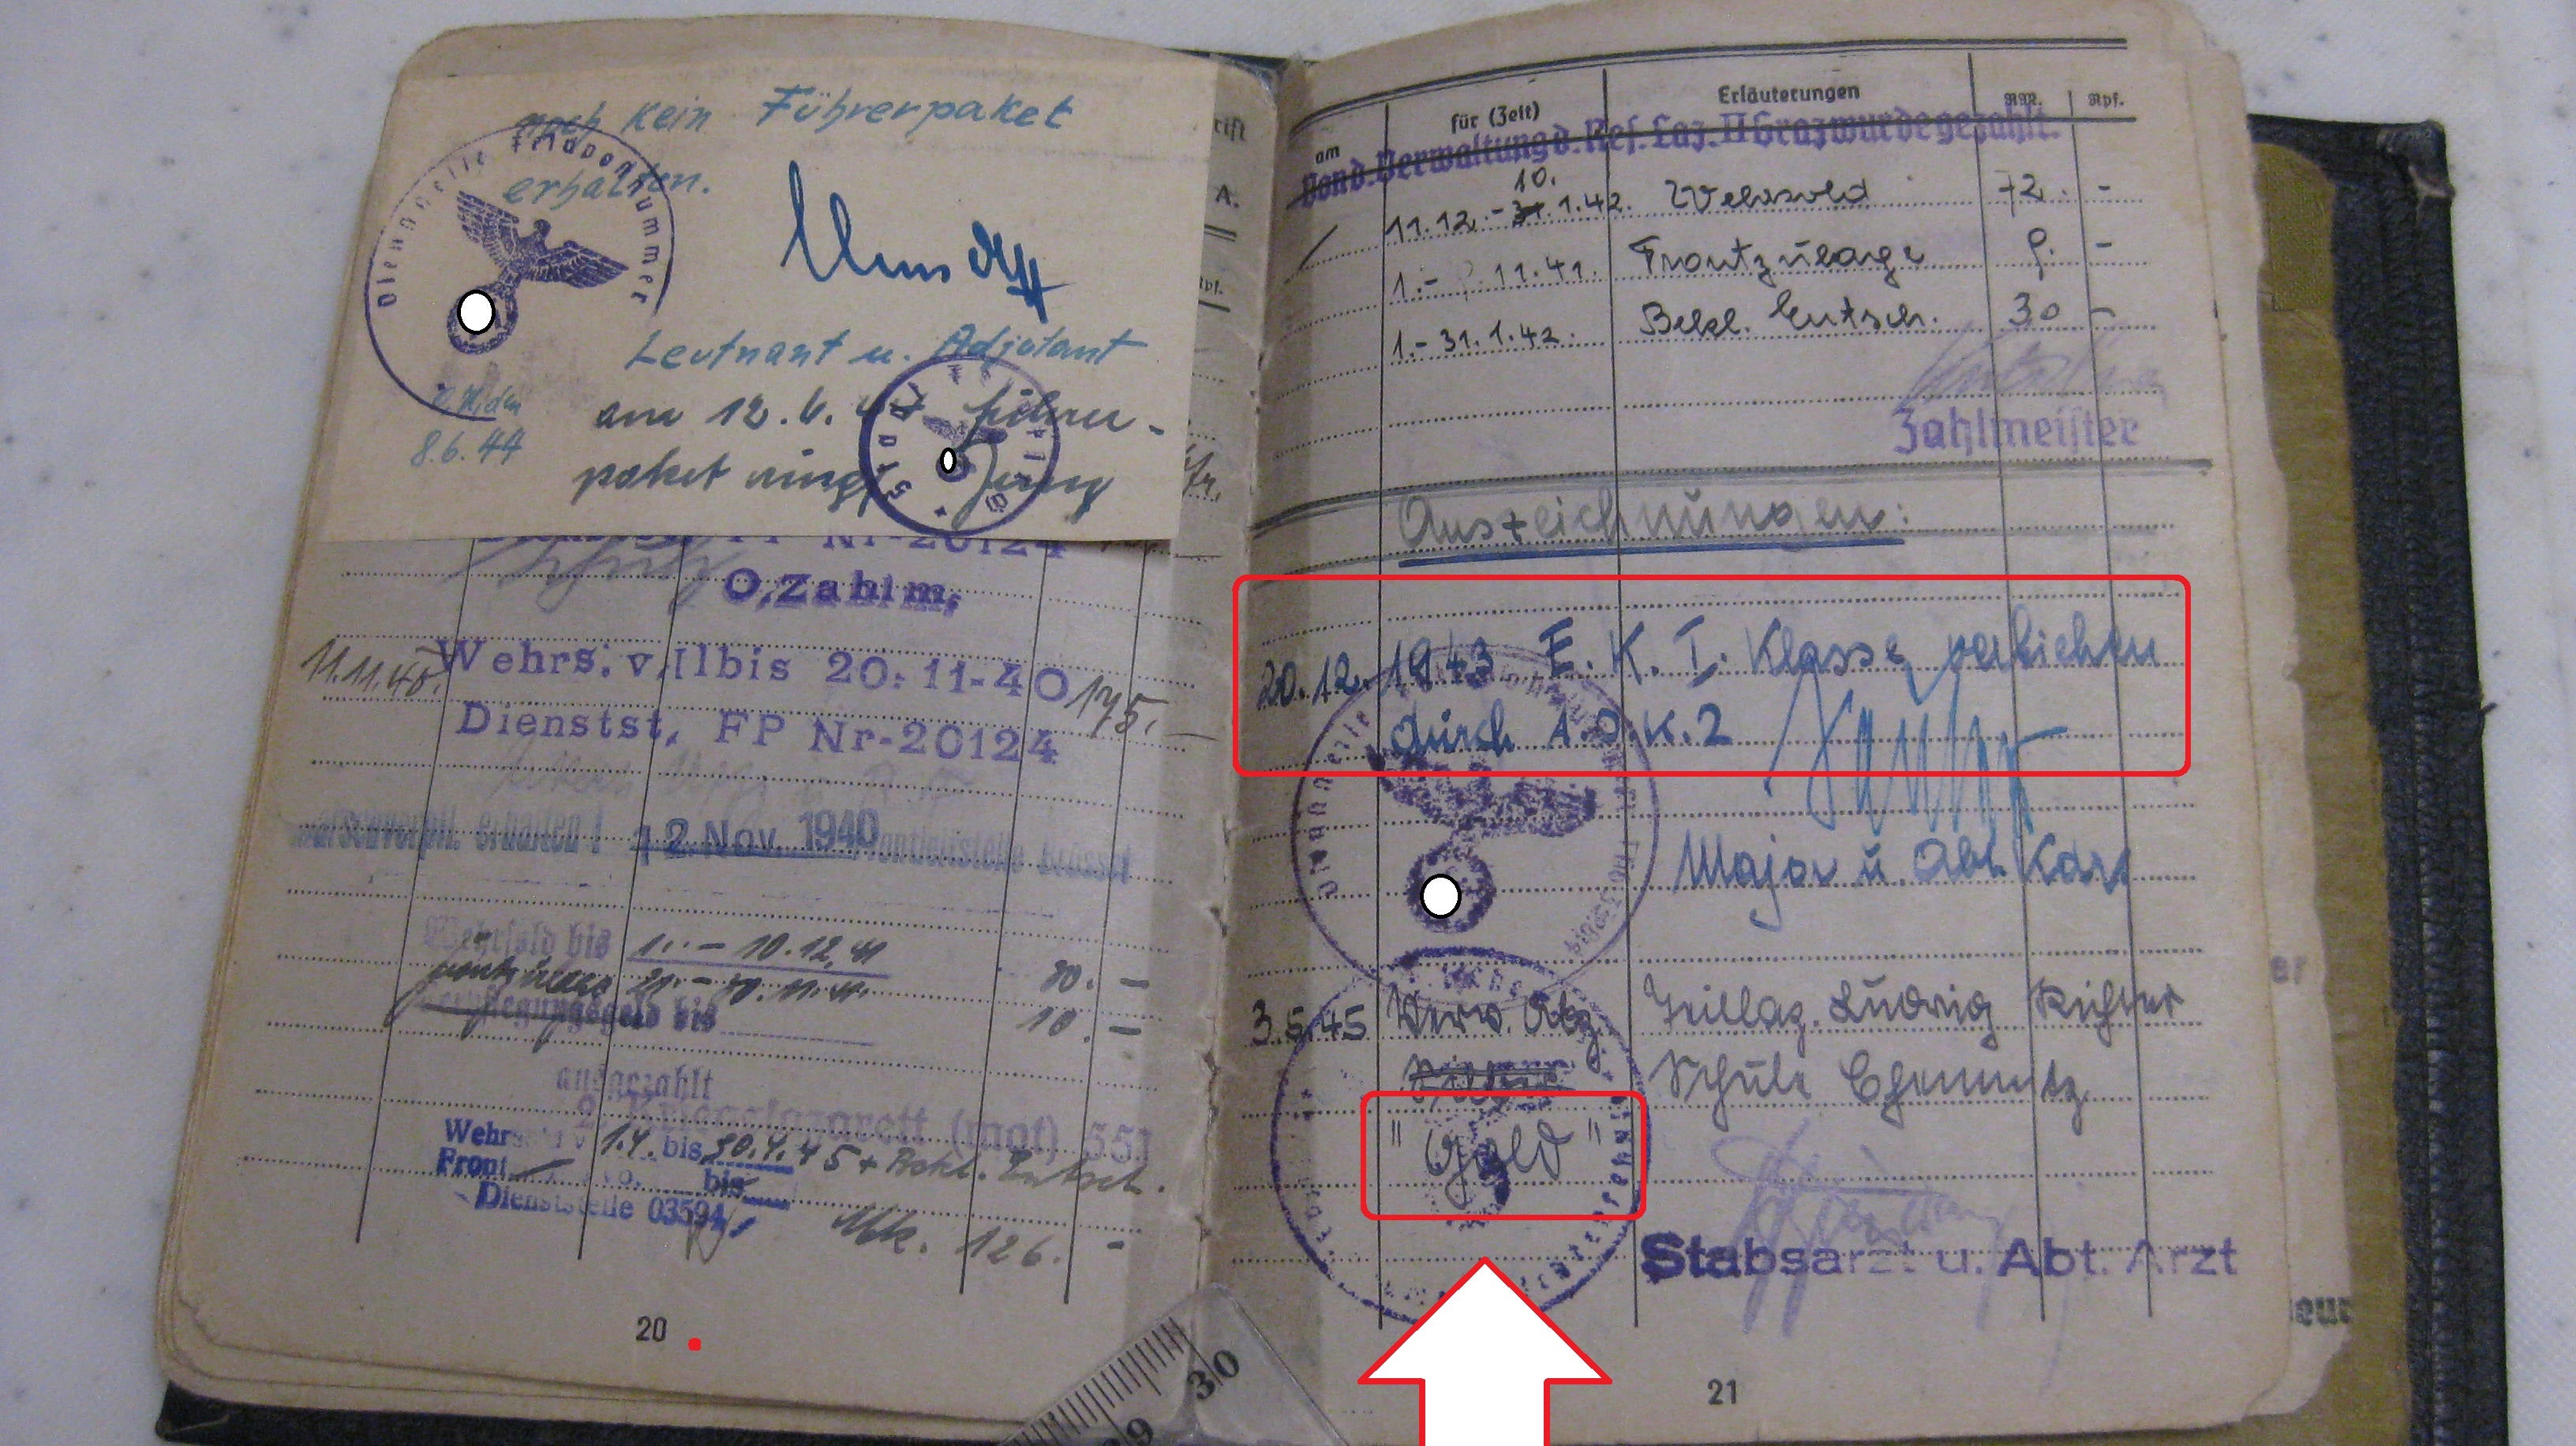 noch kein Führerpaket
erhalten.
Dienststelle Feldpostnummer
Leutnant u. Adjutant
8.6.44
am 12.6. 44 Führer-
paket
O.Zahlm.
11.11.40.
Wehrs. v. 11bis 20. 11-40
175. —
Dienstst. FP Nr-20124
erhalten !
12. Nov. 1940
Wehrsold bis 1. – 10.12.41
80. —
21. – 30.11.41.
Verpflegungsgeld bis
10. —
ausgezahlt
Kriegslazarett (mot) 551
1.4. bis 30.4.45 + Bekl. Entsch.
Front bis
Dienststelle 03594
126. -
20
am
für (Zeit)
Erläuterungen
RM.
Rpf.
Von d. Verwaltung d. Res. Laz. II Graz wurde gezahlt.
10.
11.12. - 31.1.42. Wehrsold 72. -
1. - 11.41. Frontzulage 9. -
1. - 31.1.42. Bekl. Entsch. 30 -
Zahlmeister
Auszeichnungen:
20.12.1943 E. K. I. Klasse verliehen
durch A.O.K. 2
Major u. Abt. Kdr.
3.5.45 Verw. Abz. Teillaz. Ludwig Richter
Silber Schule Chemnitz
"Gold"
Stabsarzt u. Abt. Arzt
21
30